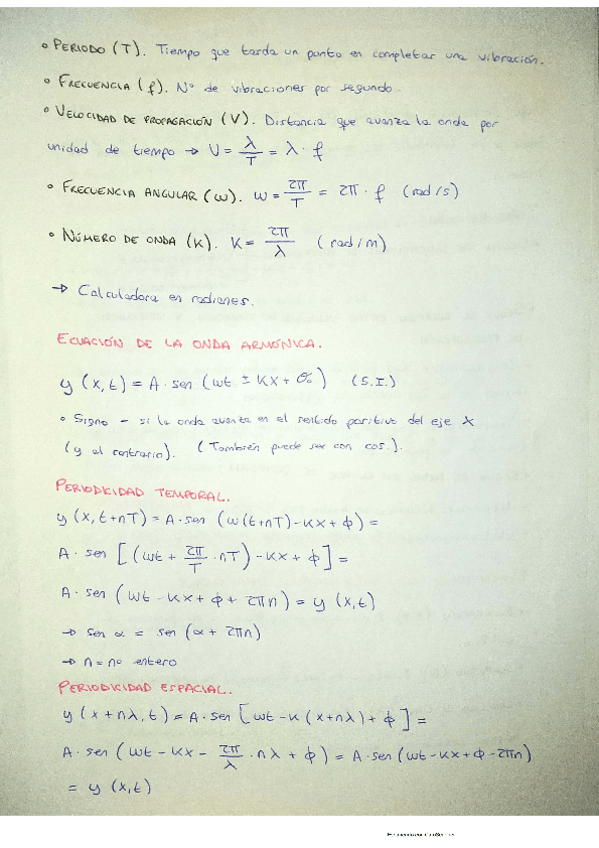 • PERIODO (T). Tiempo que tarda un punto en completar una vibración.
• FRECUENCIA (f). Nº de vibraciones por segundo.
• VELOCIDAD DE PROPAGACIÓN (V). Distancia que avanza la onda por
unidad de tiempo → V = λ/T = λ · f
• FRECUENCIA ANGULAR (ω). ω = 2π/T = 2π · f (rad/s)
• NÚMERO DE ONDA (K). K = 2π/λ (rad/m)
→ Calculadora en radianes.
ECUACIÓN DE LA ONDA ARMÓNICA.
y (x,t) = A · sen (ωt ± Kx + φ₀) (S.I.)
• Signo - si la onda avanza en el sentido positivo del eje X
(y al contrario). (También puede ser con cos.).
PERIODICIDAD TEMPORAL.
y (x, t+nT) = A · sen (ω(t+nT) - Kx + φ) =
A · sen [(ωt + 2π/T · nT) - Kx + φ] =
A · sen (ωt - Kx + φ + 2πn) = y (x,t)
→ sen α = sen (α + 2πn)
→ n = nº entero
PERIODICIDAD ESPACIAL.
y (x + nλ, t) = A · sen [ωt - K (x+nλ) + φ] =
A · sen (ωt - Kx - 2π/λ · nλ + φ) = A · sen (ωt - Kx + φ - 2πn)
= y (x,t)